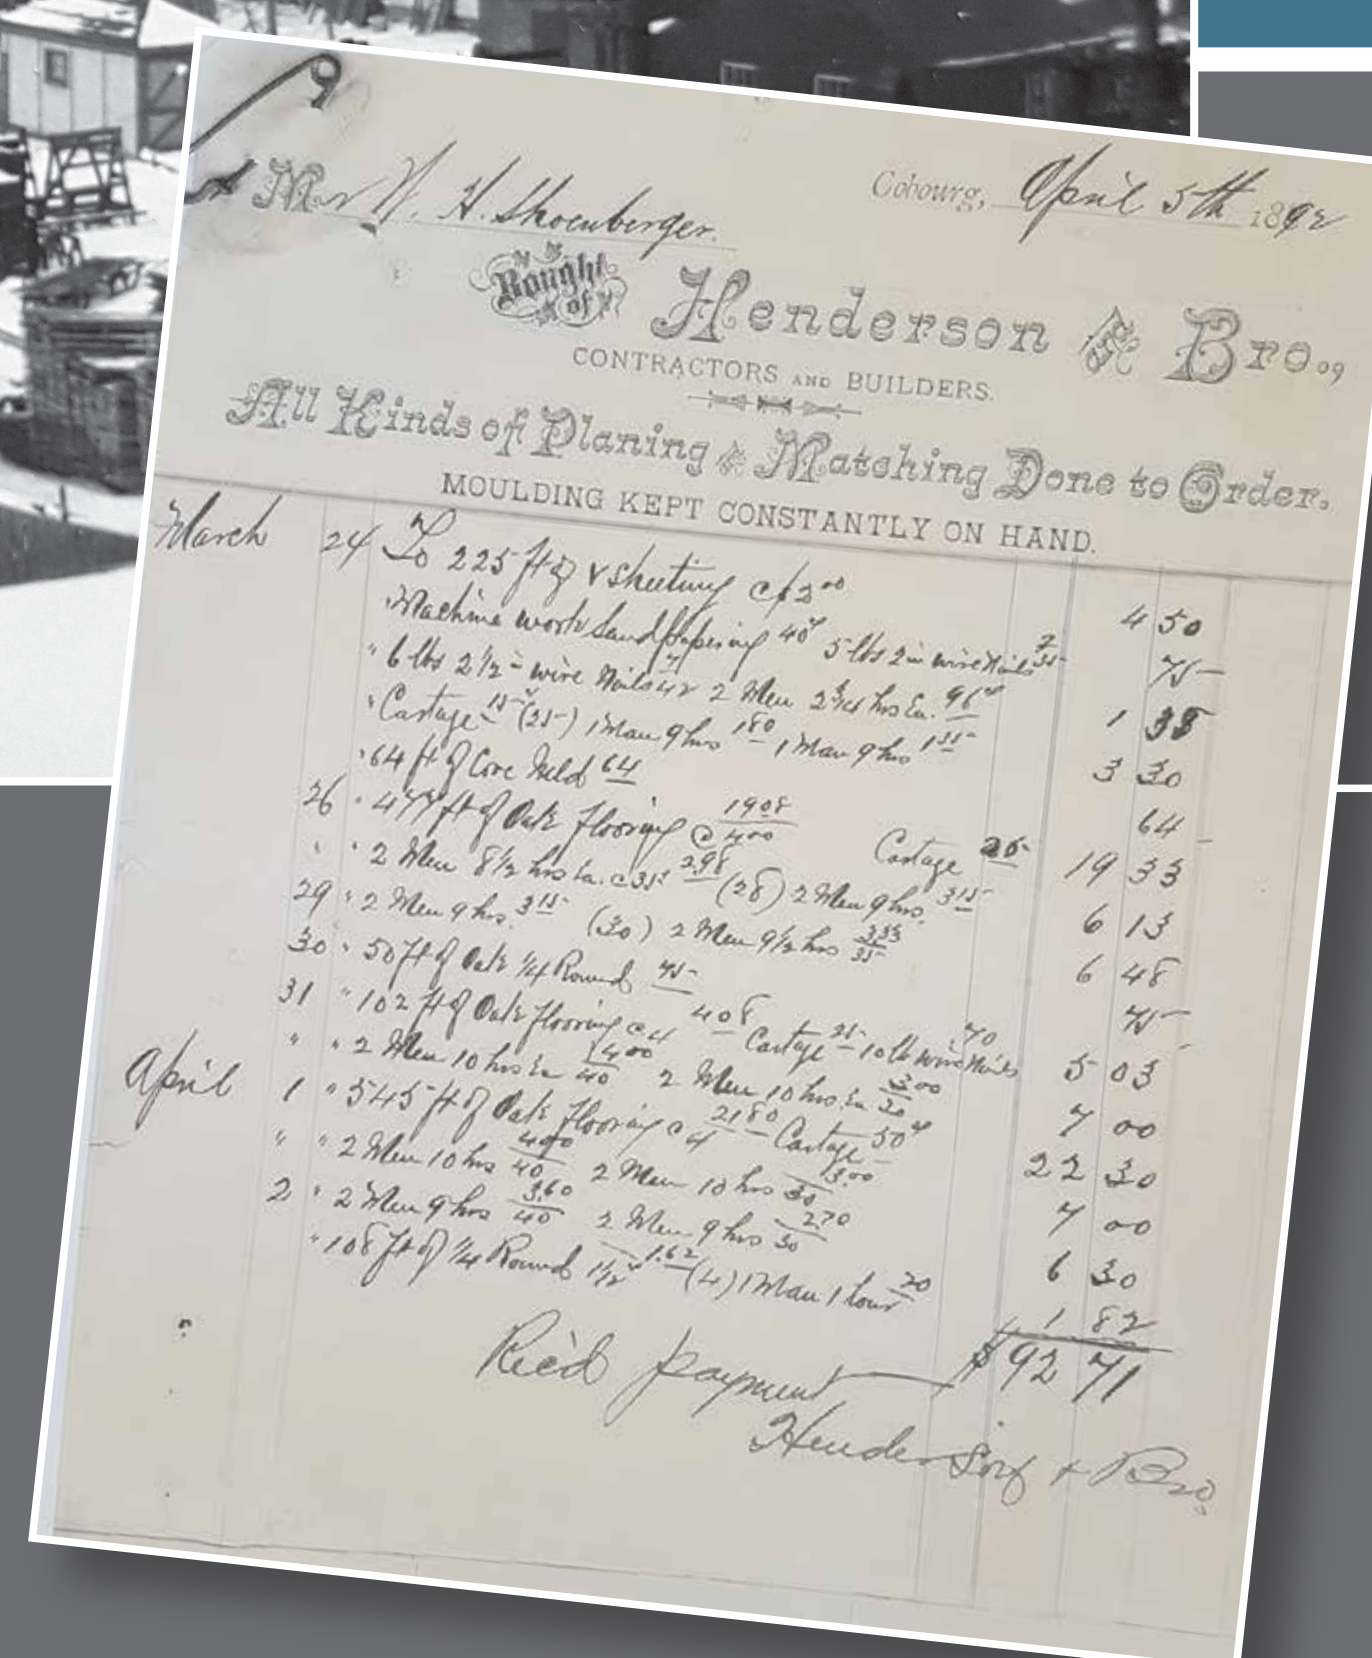 Mr W. H. Shoenberger.
Cobourg, April 5th 1892
Bought of Henderson and Bro.,
CONTRACTORS AND BUILDERS.
All Kinds of Planing & Matching Done to Order.
MOULDING KEPT CONSTANTLY ON HAND.
March 24 To 225 ft of V sheeting @ 2.00 4 50
" Machine work Sandpapering 40 5 lbs 2 in wire Nails 7 35 75
" 6 lbs 2 1/2 in wire Nails 7 42 2 Men 2 3/4 hrs Ea. 96 1 38
" Cartage 15 (25) 1 Man 9 hrs 1 80 1 Man 9 hrs 1 35 3 30
" 64 ft of Cove Meld 64 64
26 " 477 ft of Oak flooring @ 4 00 19 08 Cartage 25 19 33
" " 2 Men 8 1/2 hrs Ea. @ 35 2.98 (28) 2 Men 9 hrs. 3 15 6 13
29 " 2 Men 9 hrs. 3 15 (30) 2 Men 9 1/2 hrs 3 33 35 6 48
30 " 50 ft of Oak 1/4 Round 75 75
31 " 102 ft of Oak flooring @ 4 4 08 Cartage 25 10 lb wire Nails 70 5 03
" " 2 Men 10 hrs Ea 4 00 40 2 Men 10 hrs. Ea. 3 00 30 7 00
April 1 " 545 ft of Oak flooring @ 4 21 80 Cartage 50 22 30
" " 2 Men 10 hrs 4 00 40 2 Men 10 hrs 3.00 30 7 00
2 " 2 Men 9 hrs 3.60 40 2 Men 9 hrs 2.70 30 6 30
" 108 ft of 1/4 Round 1 1/2 1.62 (4) 1 Man 1 hour 20 1 82
Rec'd payment $92 71
Henderson & Bro.